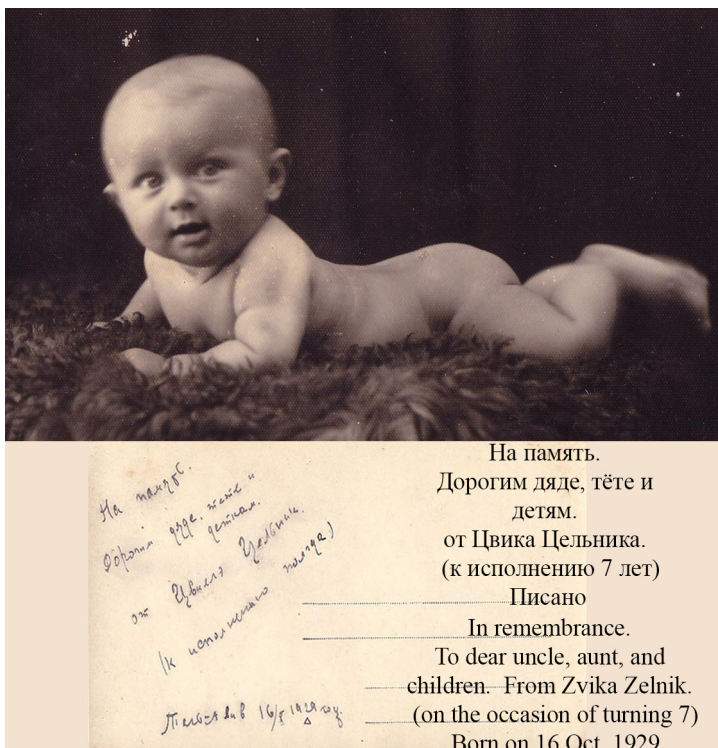 На память.
Дорогим дяде, тете и
деткам.
от Цельник.
(к полгода)
Тель Авив 1929
На память.
Дорогим дяде, тёте и
детям.
от Цвика Цельника.
(к исполнению 7 лет)
Писано
In remembrance.
To dear uncle, aunt, and
children. From Zvika Zelnik.
(on the occasion of turning 7)
Born on 16 Oct. 1929